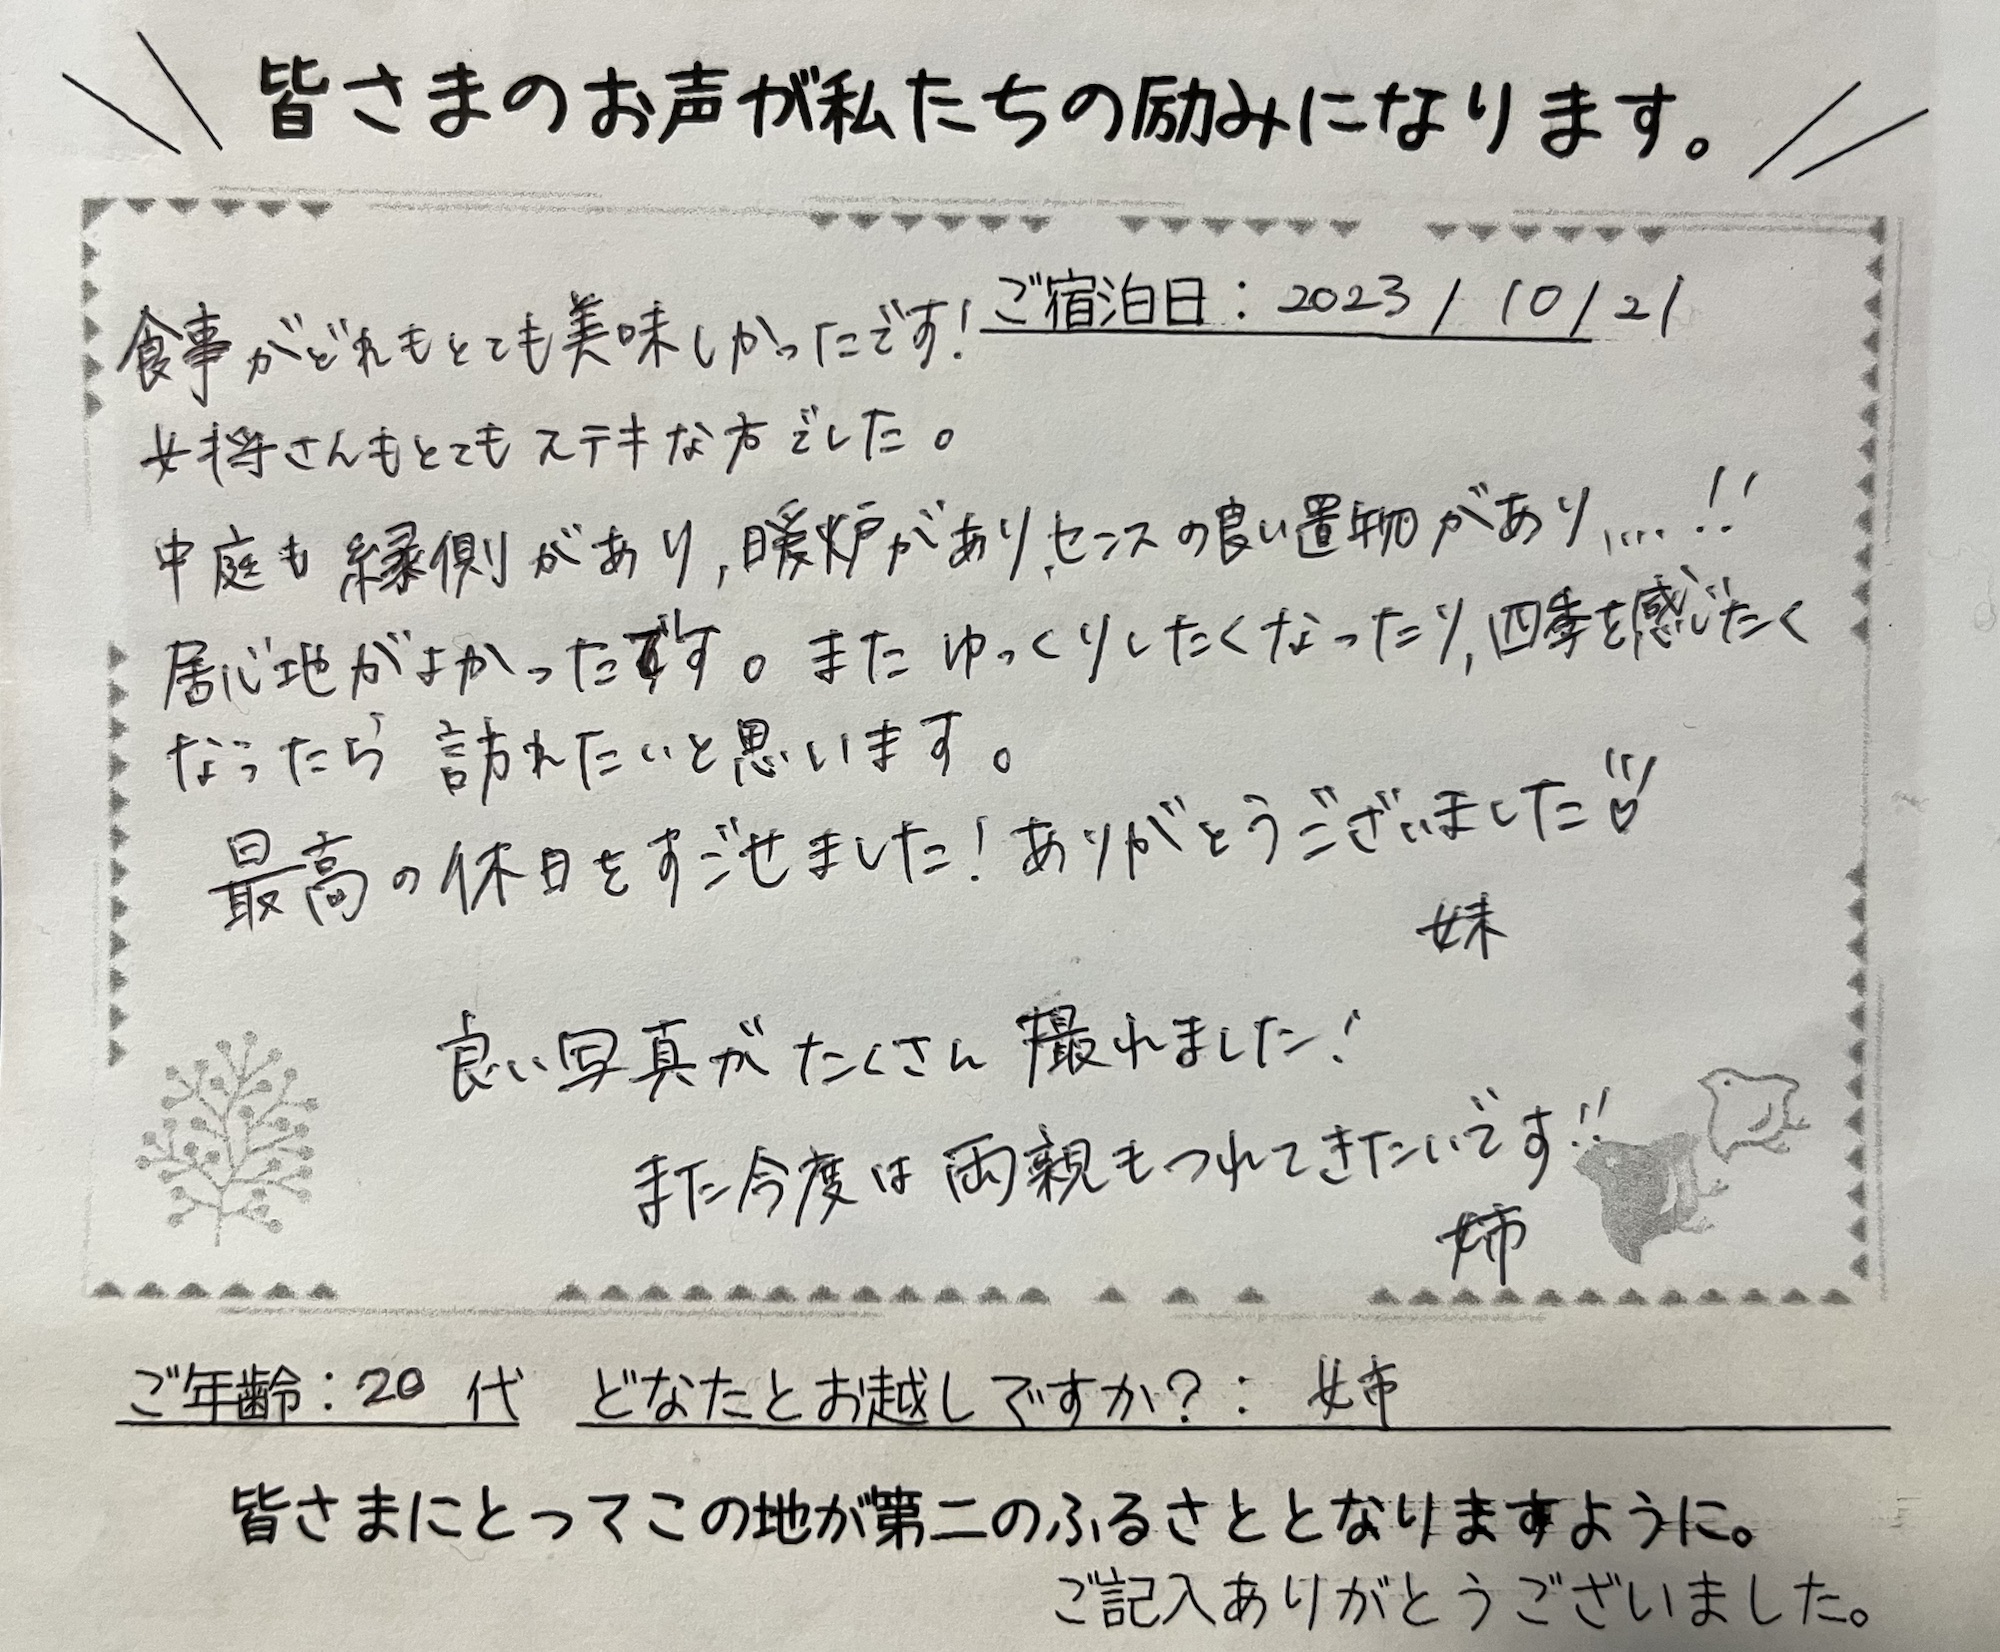 皆さまのお声が私たちの励みになります。
ご宿泊日：2023/10/21
食事がどれもとても美味しかったです!
女将さんもとてもステキな方でした。
中庭も縁側があり,暖炉があり,センスの良い置物があり,....!!
居心地がよかったです。またゆっくりしたくなったり,四季を感じたく
なったら訪れたいと思います。
最高の休日をすごせました!ありがとうございました
妹
良い写真がたくさん撮れました!
また今度は両親もつれてきたいです!!
姉
ご年齢：20代 どなたとお越しですか?：姉
皆さまにとってこの地が第二のふるさととなりますように。
ご記入ありがとうございました。